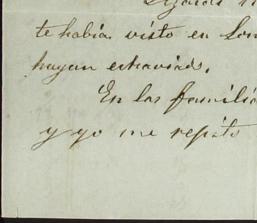 te habia visto en Lon
hayan estraviado.
En las famili
y yo me repito